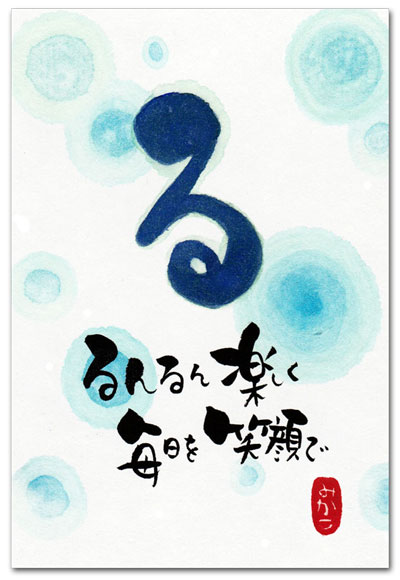 る
るんるん 楽しく
毎日を 笑顔で
みかつ